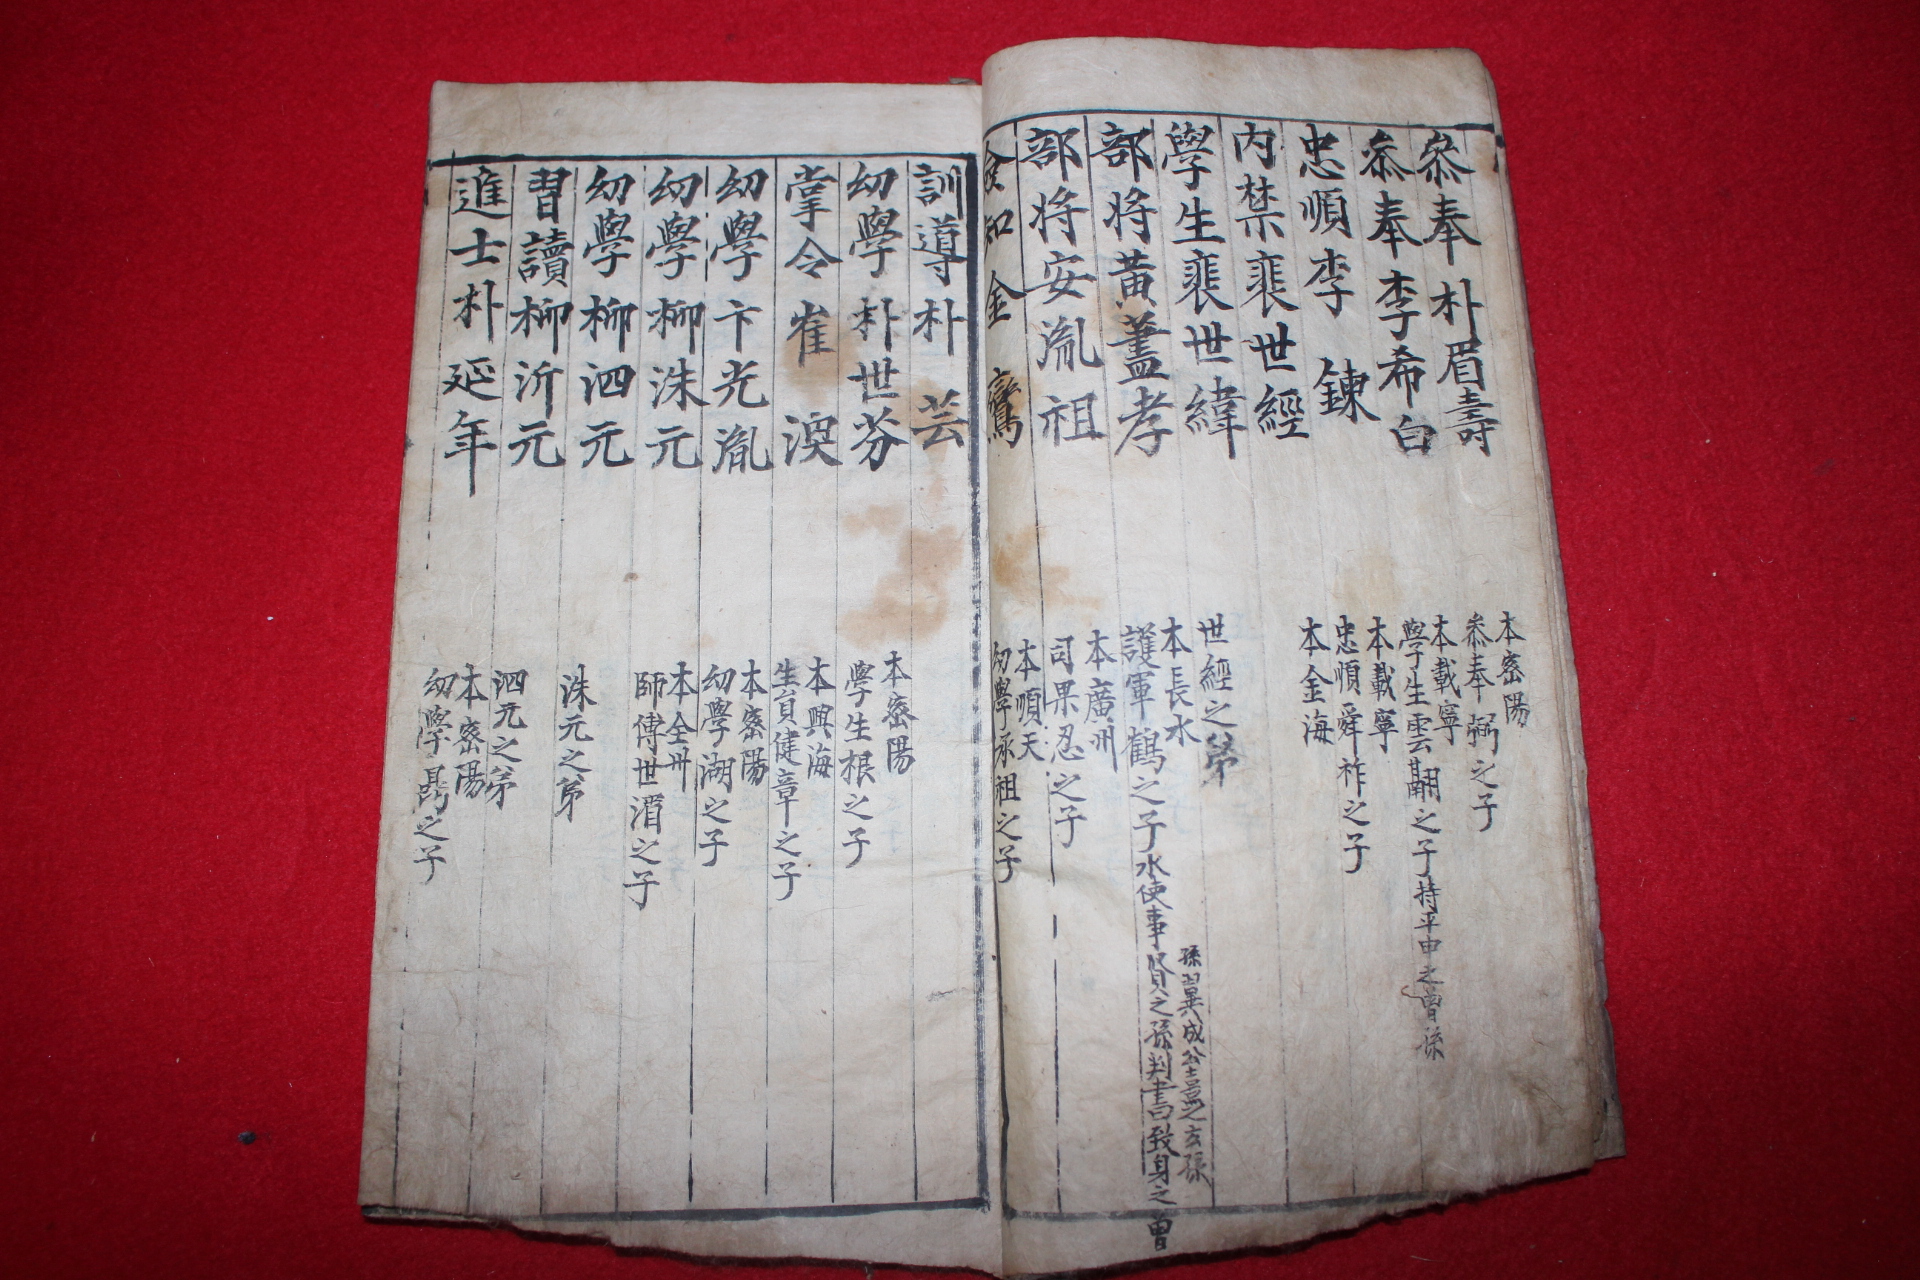 參奉朴眉壽
本密陽
參奉弼之子
參奉李希白
本載寧
學生雲翮之子持平中之曾孫
忠順李鍊
本載寧
忠順舜祚之子
內禁裴世經
本金海
學生裴世緯
世經之弟
部將黃藎孝
本長水
護軍鶴之子水使事賢之孫判書致身之曾
孫翼成公喜之玄孫
部將安胤祖
本廣州
司果忍之子
僉知金鸞
本順天
幼學承祖之子
訓導朴芸
幼學朴世芬
本密陽
學生根之子
掌令崔渷
本興海
生員健章之子
幼學卞光胤
本密陽
幼學湖之子
幼學柳洙元
本全州
師傅世湄之子
幼學柳泗元
洙元之弟
習讀柳沂元
泗元之弟
進士朴延年
本密陽
幼學之子